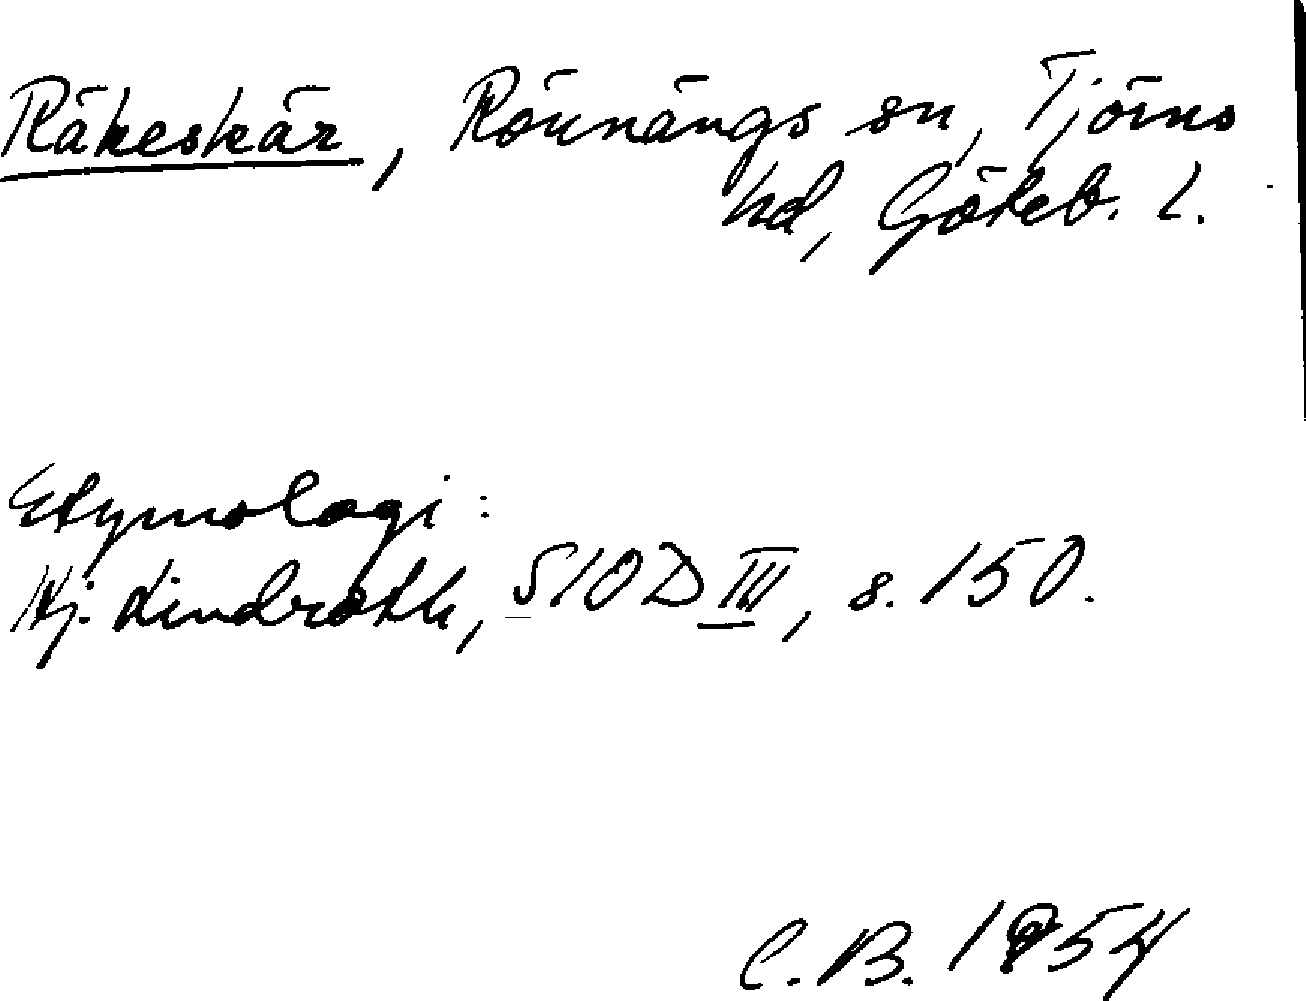 Räkeskär, Rönnängs sn, Tjörns
hd, Göteb. l.
Etymologi:
Hj. Lindroth, SIOD III, s. 150.
C. B. 1954